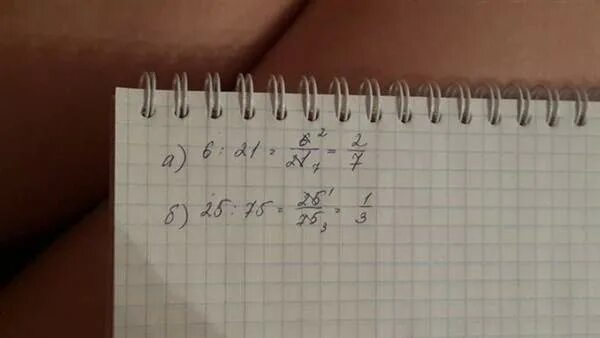 а) 6 : 21 = 6²/21₇ = 2/7
б) 25 : 75 = 25¹/75₃ = 1/3